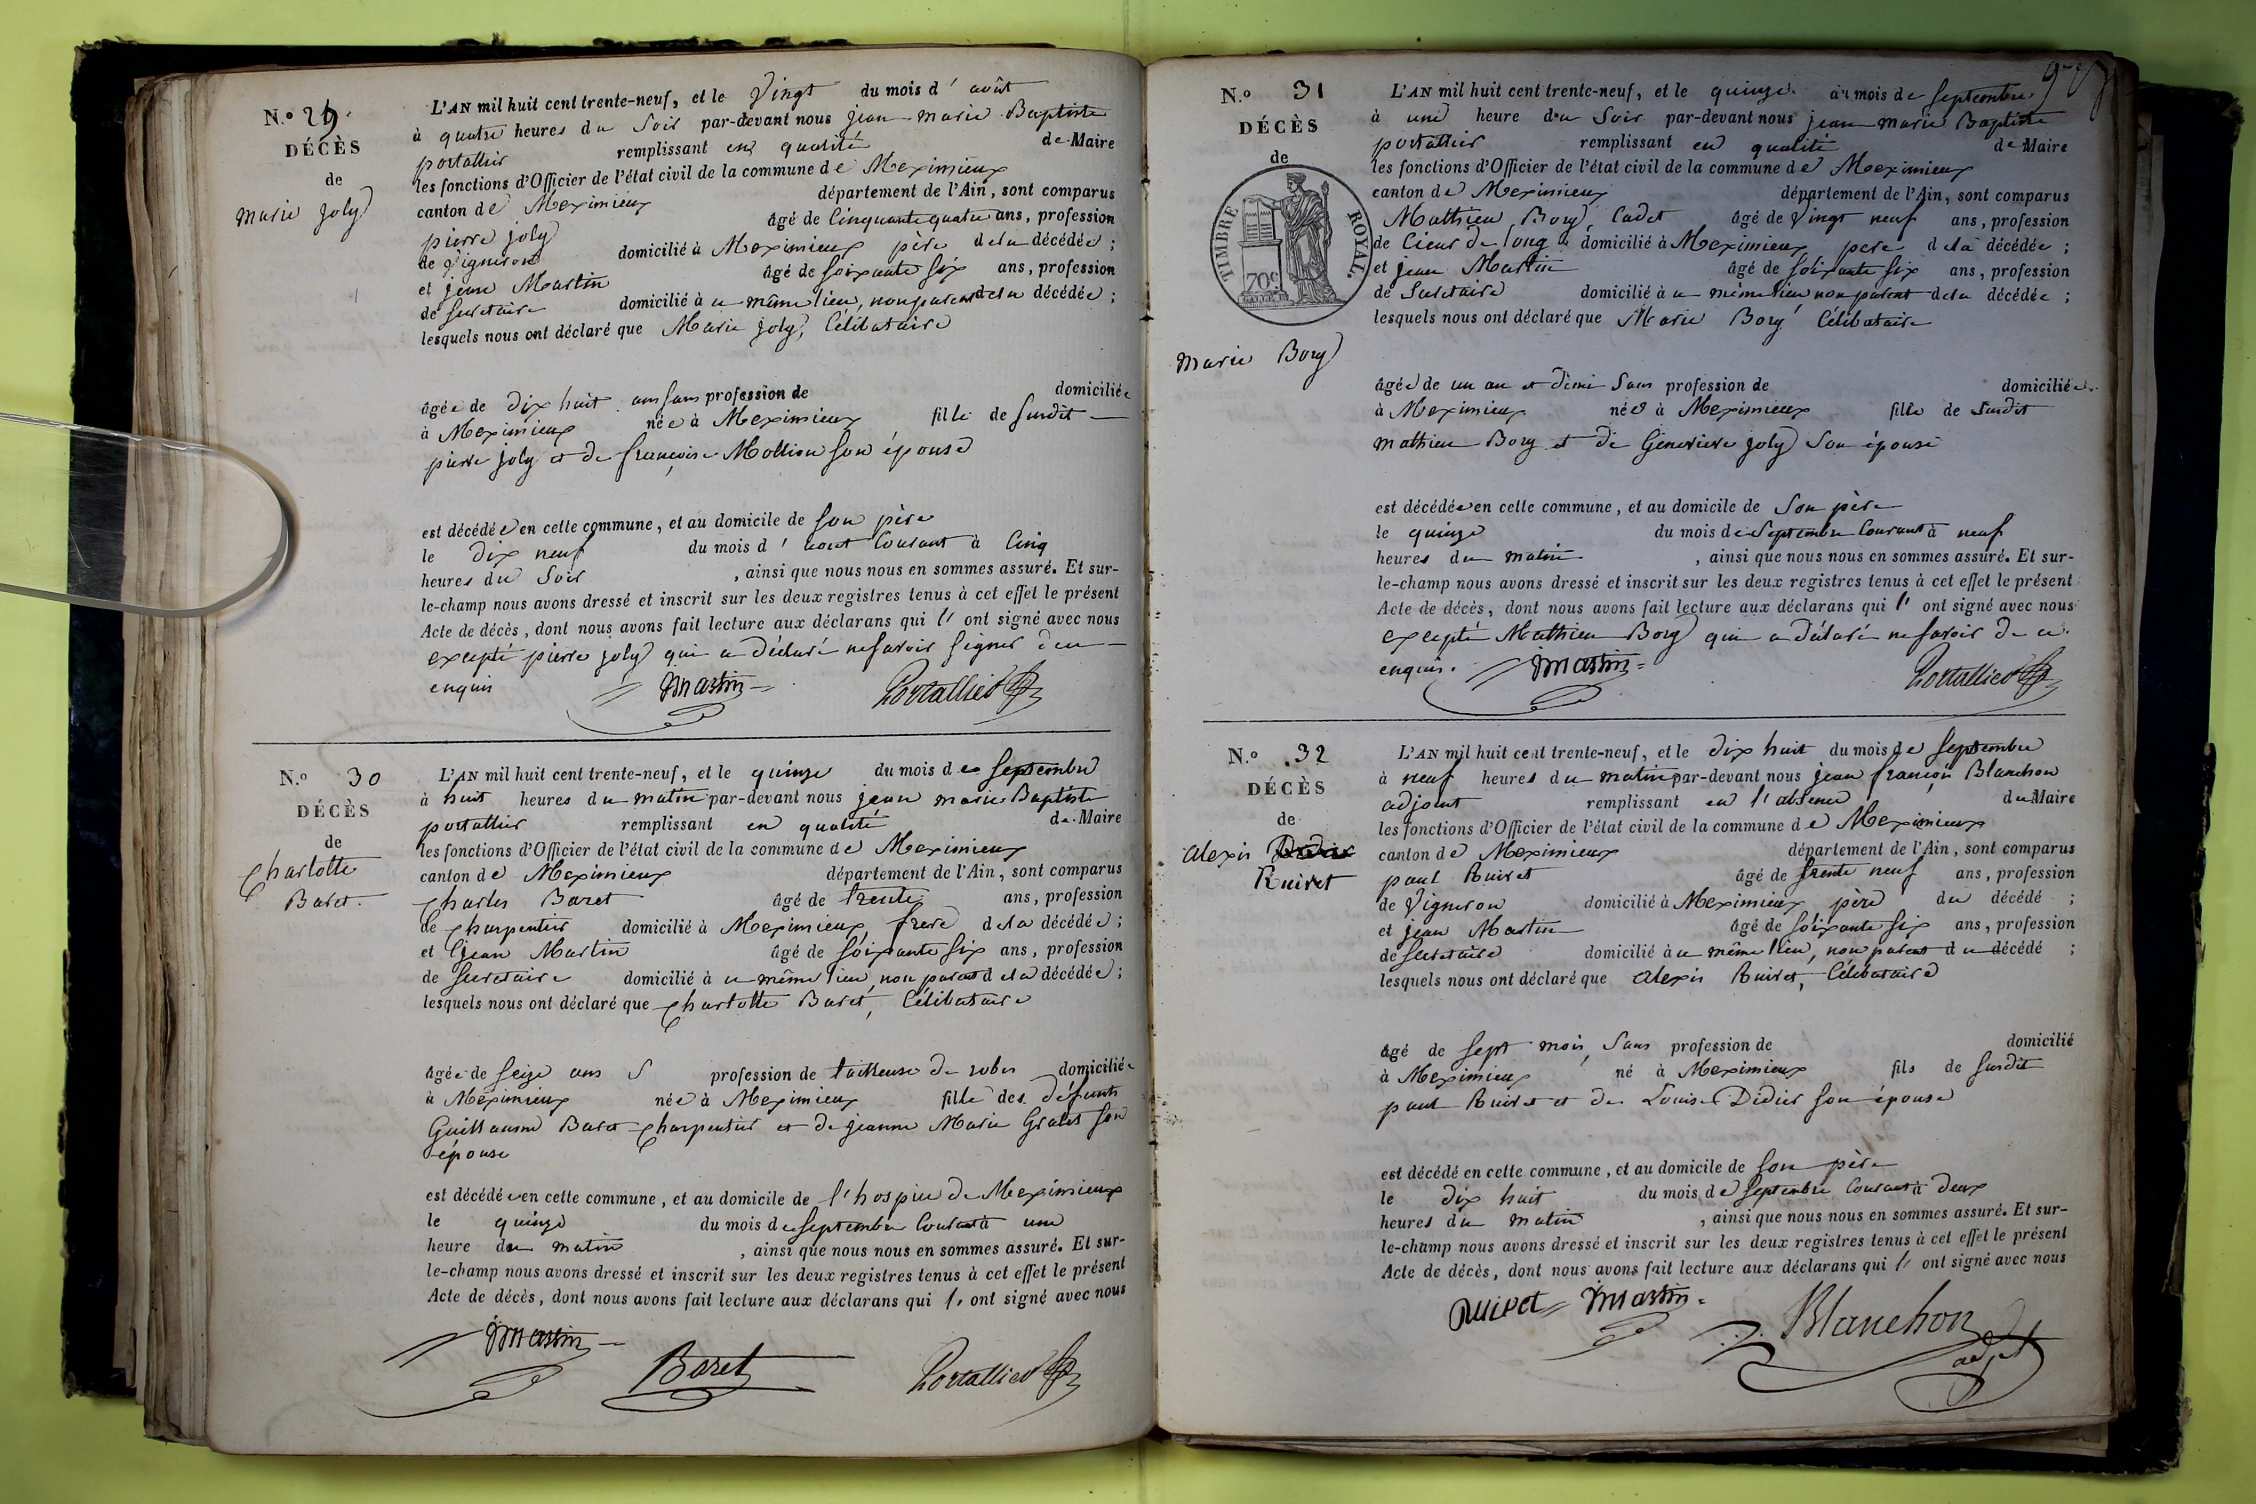 N.o 29.
DÉCÈS
de
Marie Joly
L'AN mil huit cent trente-neuf, et le Vingt du mois d' août
à quatre heures du Soir par-devant nous jean marie Baptiste
portallier remplissant en qualité de Maire
les fonctions d'Officier de l'état civil de la commune de Meximieux
canton de Meximieux département de l'Ain, sont comparus
pierre joly âgé de Cinquante quatre ans, profession
de Vigneron domicilié à Meximieux père de la décédée ;
et jean Martin âgé de Soixante Six ans, profession
de Secretaire domicilié à ce même lieu, non parent de la décédée ;
lesquels nous ont déclaré que Marie joly, Célibataire
âgée de dix huit ans sans profession de domiciliée
à Meximieux née à Meximieux fille de Susdit
pierre joly et de françoise Mollion son épouse
est décédée en cette commune, et au domicile de son père
le dix neuf du mois d' aout Courant à Cinq
heures du Soir , ainsi que nous nous en sommes assuré. Et sur-
le-champ nous avons dressé et inscrit sur les deux registres tenus à cet effet le présent
Acte de décès, dont nous avons fait lecture aux déclarans qui l' ont signé avec nous
excepté pierre joly qui a déclaré ne savoir signer de ce
enquis Jmartin Portallier
N.o 30
DÉCÈS
de
Charlotte
Baret.
L'AN mil huit cent trente-neuf, et le quinze du mois de Septembre
à huit heures du matin par-devant nous jean marie Baptiste
portallier remplissant en qualité de Maire
les fonctions d'Officier de l'état civil de la commune de Meximieux
canton de Meximieux département de l'Ain, sont comparus
Charles Baret âgé de trente ans, profession
de Charpentier domicilié à Meximieux, frere de la décédée ;
et jean Martin âgé de Soixante Six ans, profession
de Secretaire domicilié à ce même lieu, non parent de la décédée ;
lesquels nous ont déclaré que Charlotte Baret, Célibataire
âgée de Seize ans profession de tailleuse de robes domiciliée
à Meximieux née à Meximieux fille des défunts
Guillaume Baret Charpentier et de jeanne Marie Grabet son
épouse
est décédée en cette commune, et au domicile de l'hospice de Meximieux
le quinze du mois de Septembre Courant à une
heure du matin , ainsi que nous nous en sommes assuré. Et sur-
le-champ nous avons dressé et inscrit sur les deux registres tenus à cet effet le présent
Acte de décès, dont nous avons fait lecture aux déclarans qui l' ont signé avec nous
Jmartin Baret Portallier
N.o 31
DÉCÈS
de
TIMBRE ROYAL.
70 c.
Marie Bory
L'AN mil huit cent trente-neuf, et le quinze du mois de Septembre
à une heure du Soir par-devant nous jean marie Baptiste
portallier remplissant en qualité de Maire
les fonctions d'Officier de l'état civil de la commune de Meximieux
canton de Meximieux département de l'Ain, sont comparus
Mathieu Bory, Cadet âgé de Vingt neuf ans, profession
de Cieur de long domicilié à Meximieux pere de la décédée ;
et jean Martin âgé de Soixante Six ans, profession
de Secretaire domicilié à ce même lieu non parent de la décédée ;
lesquels nous ont déclaré que Marie Bory Célibataire
âgée de un an et demi Sans profession de domiciliée
à Meximieux née à Meximieux fille de Susdit
mathieu Bory et de Genevieve joly Son épouse
est décédée en cette commune, et au domicile de Son père
le quinze du mois de Septembre Courant à neuf
heures du matin , ainsi que nous nous en sommes assuré. Et sur-
le-champ nous avons dressé et inscrit sur les deux registres tenus à cet effet le présent
Acte de décès, dont nous avons fait lecture aux déclarans qui l' ont signé avec nous
excepté Mathieu Bory qui a déclaré ne savoir de ce
enquis. Jmartin Portallier
N.o 32
DÉCÈS
de
Alexis
Ruivet
L'AN mil huit cent trente-neuf, et le dix huit du mois de Septembre
à neuf heures du matin par-devant nous jean françois Blanchon
adjoint remplissant en l'absence du Maire
les fonctions d'Officier de l'état civil de la commune de Meximieux
canton de Meximieux département de l'Ain, sont comparus
paul Ruivet âgé de trente neuf ans, profession
de Vigneron domicilié à Meximieux père du décédé ;
et jean Martin âgé de Soixante Six ans, profession
de Secretaire domicilié à ce même lieu, non parent du décédé ;
lesquels nous ont déclaré que Alexis Ruivet, Célibataire
âgé de Sept mois, Sans profession de domicilié
à Meximieux né à Meximieux fils de Susdit
paul Ruivet et de Louise Didier son épouse
est décédé en cette commune, et au domicile de son père
le dix huit du mois de Septembre Courant à deux
heures du matin , ainsi que nous nous en sommes assuré. Et sur-
le-champ nous avons dressé et inscrit sur les deux registres tenus à cet effet le présent
Acte de décès, dont nous avons fait lecture aux déclarans qui l' ont signé avec nous
Ruivet Jmartin Blanchon
adjt